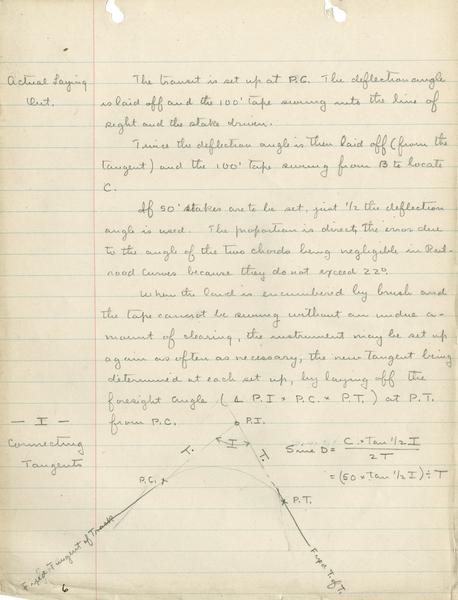 Actual Laying
Out.
The transit is set up at P.C. The deflection angle
is laid off and the 100' tape swung into the line of
sight and the stake driven.
Twice the deflection angle is then laid off (from the
tangent) and the 100' tape swung from B to locate
C.
If 50' stakes are to be set, just 1/2 the deflection
angle is used. The proportion is direct, the error due
to the angle of the two chords being negligible in Rail-
road curves because they do not exceed 22°.
When the land is encumbered by brush and
the tape cannot be swung without an undue a-
mount of clearing, the instrument may be set up
again as often as necessary, the new tangent being
determined at each set up, by laying off the
foresight angle (∠ P.I × P.C. × P.T.) at P.T.
from P.C.
— I —
Connecting
Tangents
P.I.
T.
I
T.
Sine D = C. × Tan 1/2 I / 2T
= (50 × Tan 1/2 I) ÷ T
P.C.
P.T.
Fixed Tangent of Track
Fixed T. of T.
6